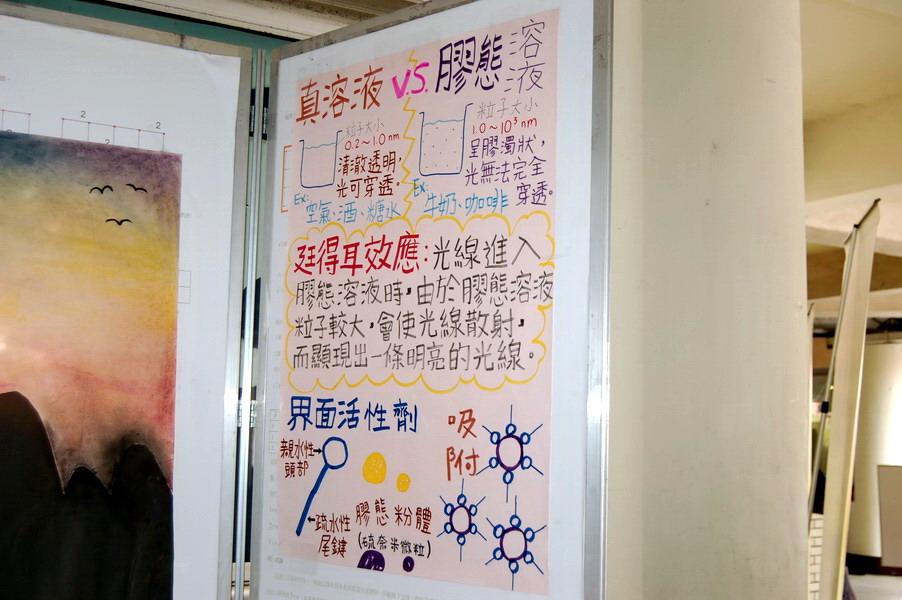 真溶液 V.S. 膠態溶液
粒子大小
0.2~1.0 nm
清澈透明,
光可穿透。
Ex:
空氣、酒、糖水
粒子大小
1.0~10³ nm
呈膠濁狀,
光無法完全
穿透。
Ex:
牛奶、咖啡
廷得耳效應:光線進入
膠態溶液時,由於膠態溶液
粒子較大,會使光線散射,
而顯現出一條明亮的光線。
界面活性劑
親水性
頭部
疏水性
尾鏈
膠態粉體
(硫奈米微粒)
吸
附
2
2
2